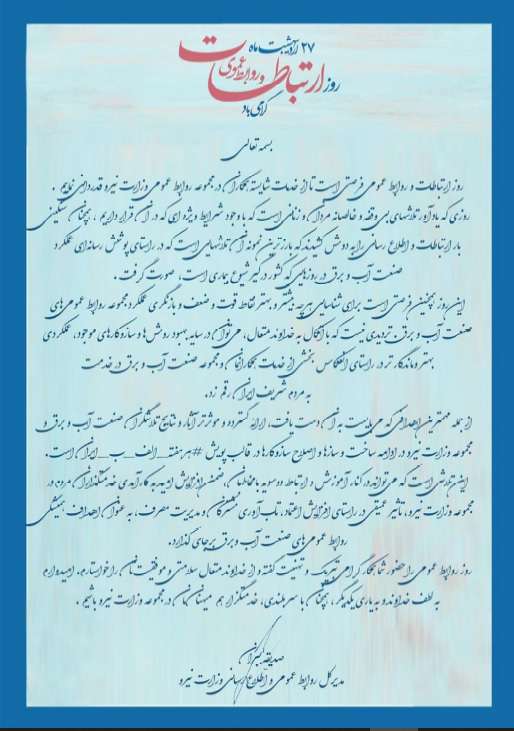 ۲۷ اردیبهشت ماه
روز ارتباطات
و روابط عمومی
گرامی باد
بسمه تعالی
روز ارتباطات و روابط عمومی فرصتی است تا از خدمات شایسته همکاران در مجموعه روابط عمومی وزارت نیرو قدردانی نمایم .
روزی که یادآور تلاشهای بی وقفه و خالصانه مردان و زنانی است که با وجود شرایط ویژه ای که در آن قرار داریم ، همچنان سنگینی
بار ارتباطات و اطلاع رسانی را به دوش کشیدند که بارزترین نمونه این تلاشهایی است که در راستای پوشش رسانه ای عملکرد
صنعت آب و برق در روزهایی که کشور درگیر شیوع بیماری است، صورت گرفت.
این روز همچنین فرصتی است برای شناسایی هرچه بیشتر و بهتر نقاط قوت و ضعف و بازنگری عملکرد مجموعه روابط عمومی های
صنعت آب و برق. تردیدی نیست که با اتکال به خداوند متعال، می توان در سایه بهبود روش ها و سازوکارهای موجود، عملکردی
بهتر و ماندگارتر در راستای انعکاس بخشی از خدمات همکارانمان و مجموعه صنعت آب و برق در خدمت
به مردم شریف ایران رقم زد.
از جمله مهمترین اهدافی که می بایست به آن دست یافت، ارایه گسترده و موثرتر آثار و نتایج تلاشگران صنعت آب و برق و
مجموعه وزارت نیرو در ادامه ساخت و سازها و اصلاح سازوکارها در قالب پویش #هرهفته_الف_ب_ایران است.
این تلاشی است که می تواند در کنار آموزش و ارتباط دوسویه با مخاطبان، ضمن افزایش امید به کارآمدی خدمتگزاران مردم در
مجموعه وزارت نیرو، تاثیر عمیقی در راستای افزایش اعتماد، تاب آوری مشترکان و مدیریت مصرف، به عنوان اهداف همیشگی
روابط عمومی های صنعت آب و برق برجای گذارد.
روز روابط عمومی را حضور شما همکار گرامی تبریک و تهنیت گفته و از خداوند متعال سلامتی و موفقیت تان را خواستارم. امیدوارم
به لطف خداوند و به یاری یکدیگر، همچنان با سربلندی، خدمتگزار هم میهنان مان در مجموعه وزارت نیرو باشیم .
صدیقه ببران
مدیرکل روابط عمومی و اطلاع رسانی وزارت نیرو